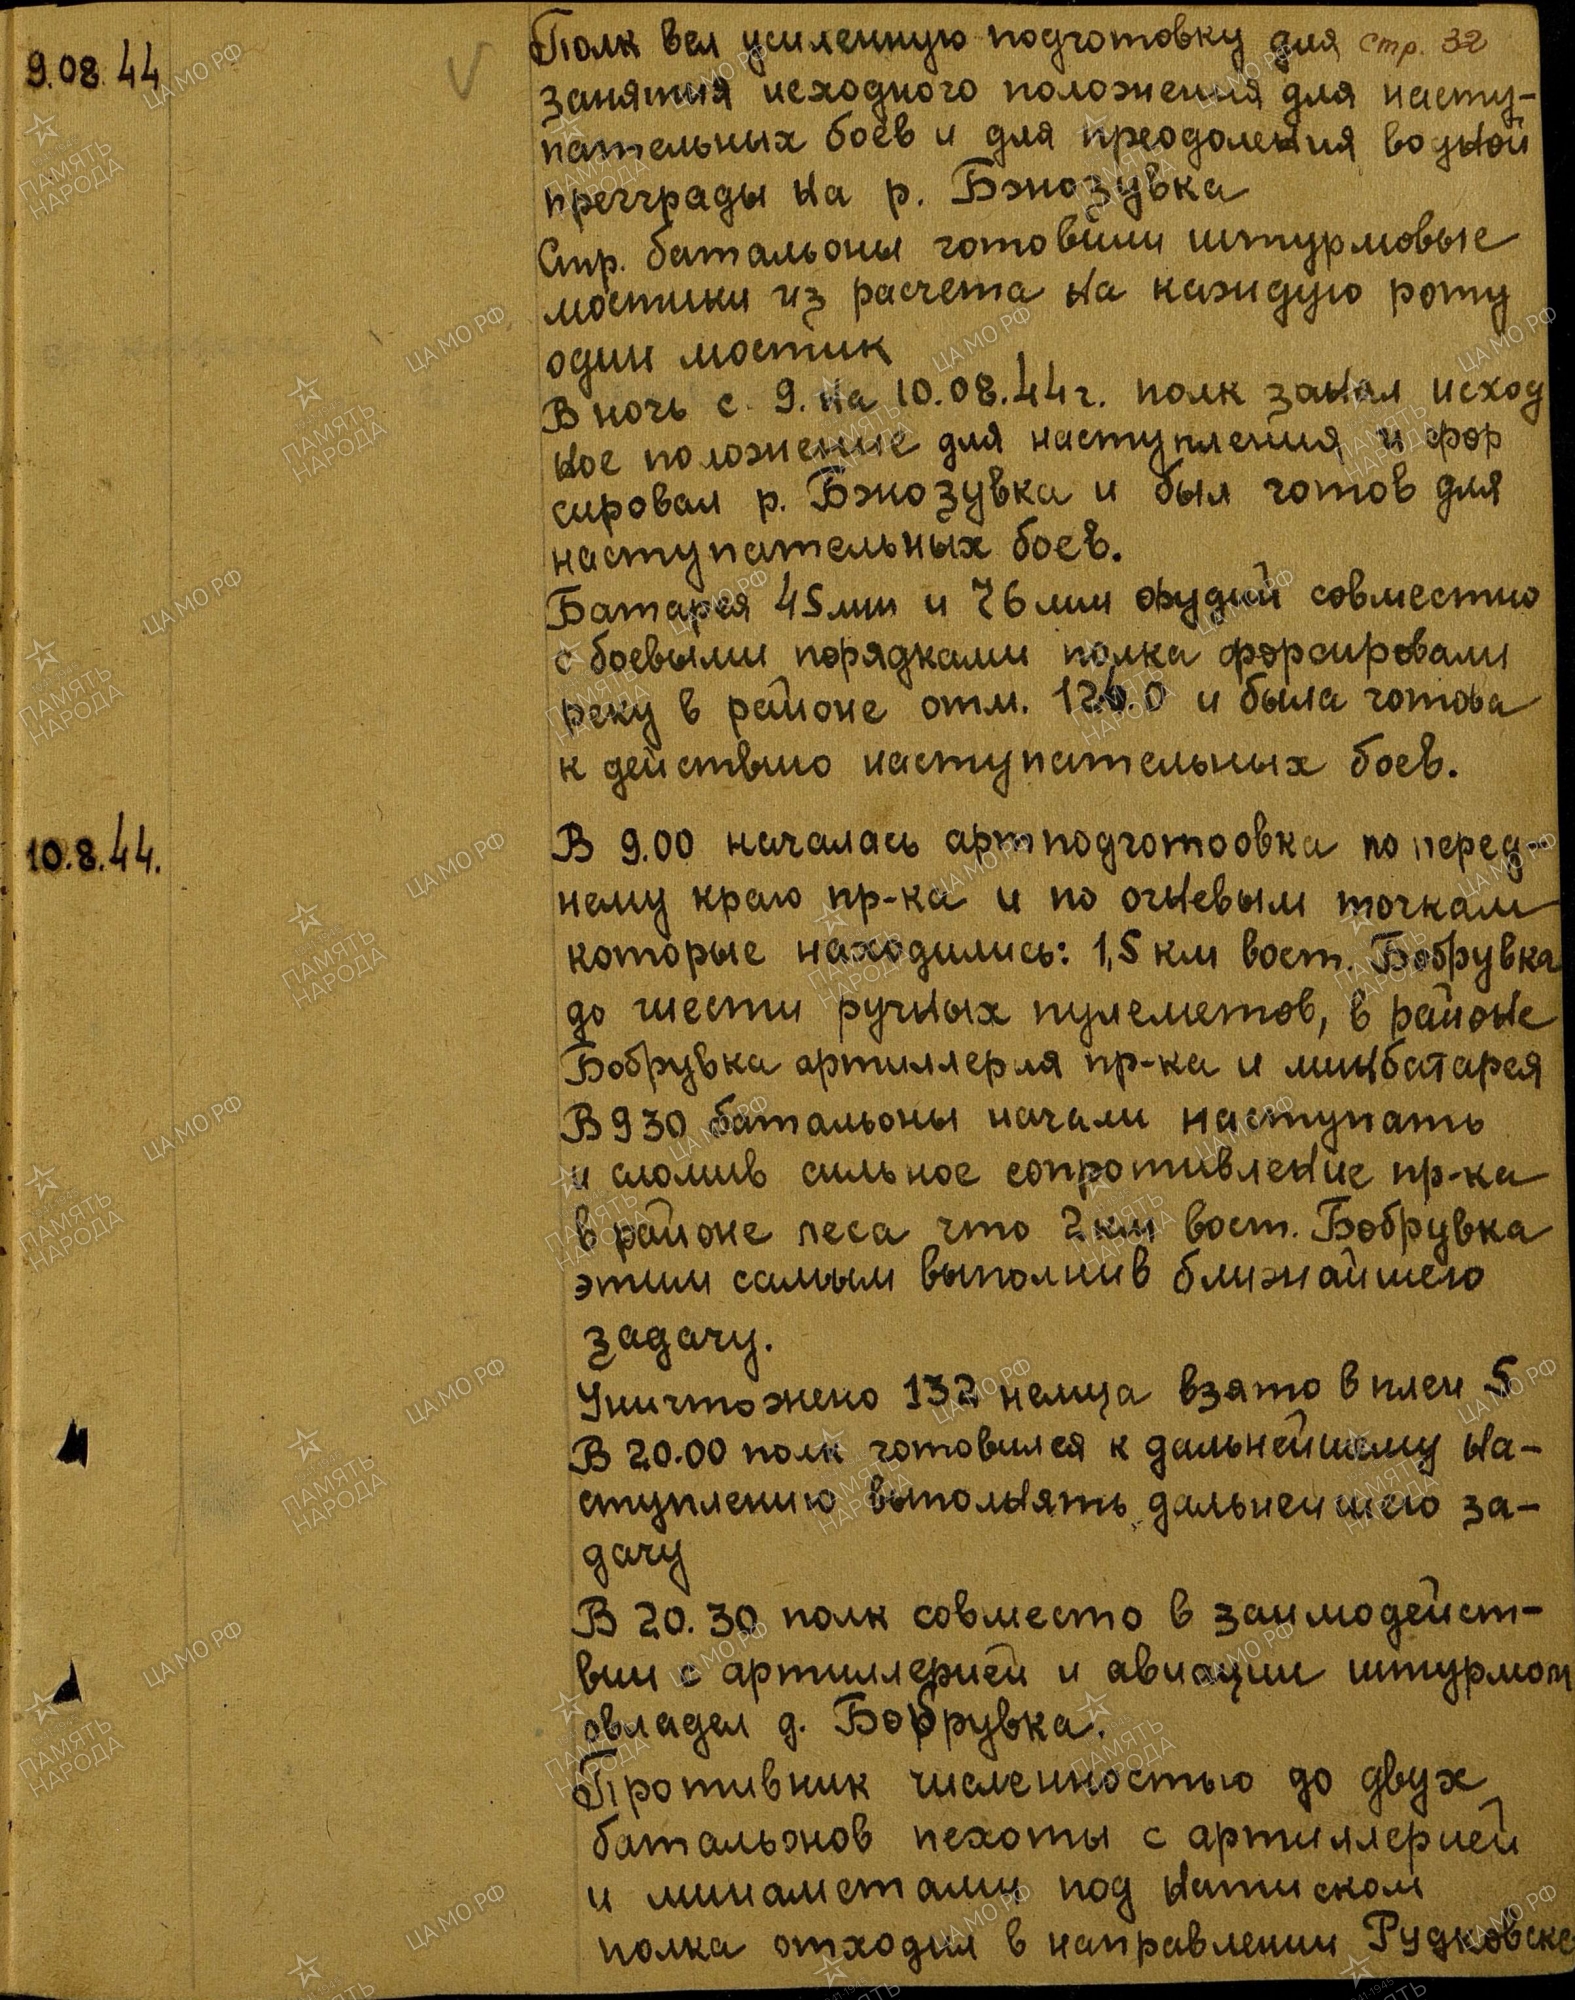 9.08.44
Полк вел усиленную подготовку для стр. 32
занятия исходного положения для насту-
пательных боев и для преодоления водной
преграды на р. Бжозувка
Стр. батальоны готовили штурмовые
мостики из расчета на каждую роту
один мостик
В ночь с 9. на 10.08.44г. полк занял исход
ное положение для наступления и фор
сировал р. Бжозувка и был готов для
наступательных боев.
Батарея 45мм и 76мм орудий совместно
с боевыми порядками полка форсировали
реку в районе отм. 126.0 и была готова
к действию наступательных боев.
10.8.44.
В 9.00 началась артподготоовка по перед-
нему краю пр-ка и по огневым точкам
которые находились: 1,5 км вост. Бобрувка
до шести ручных пулеметов, в районе
Бобрувка артиллерия пр-ка и минбатарея
В 930 батальоны начали наступать
и сломив сильное сопротивление пр-ка
в районе леса что 2км вост. Бобрувка
этим самым выполнив ближайшею
задачу.
Уничтожено 132 немца взято в плен 5
В 20.00 полк готовился к дальнейшему на-
ступлению выполнять дальнейшею за-
дачу
В 20.30 полк совместо в заимодейст-
вии с артиллерией и авиации штурмом
овладел д. Бобрувка.
Противник численностью до двух
батальонов пехоты с артиллерией
и минаметами под натиском
полка отходил в направлении Рудковске
ПАМЯТЬ НАРОДА
ЦА МО РФ